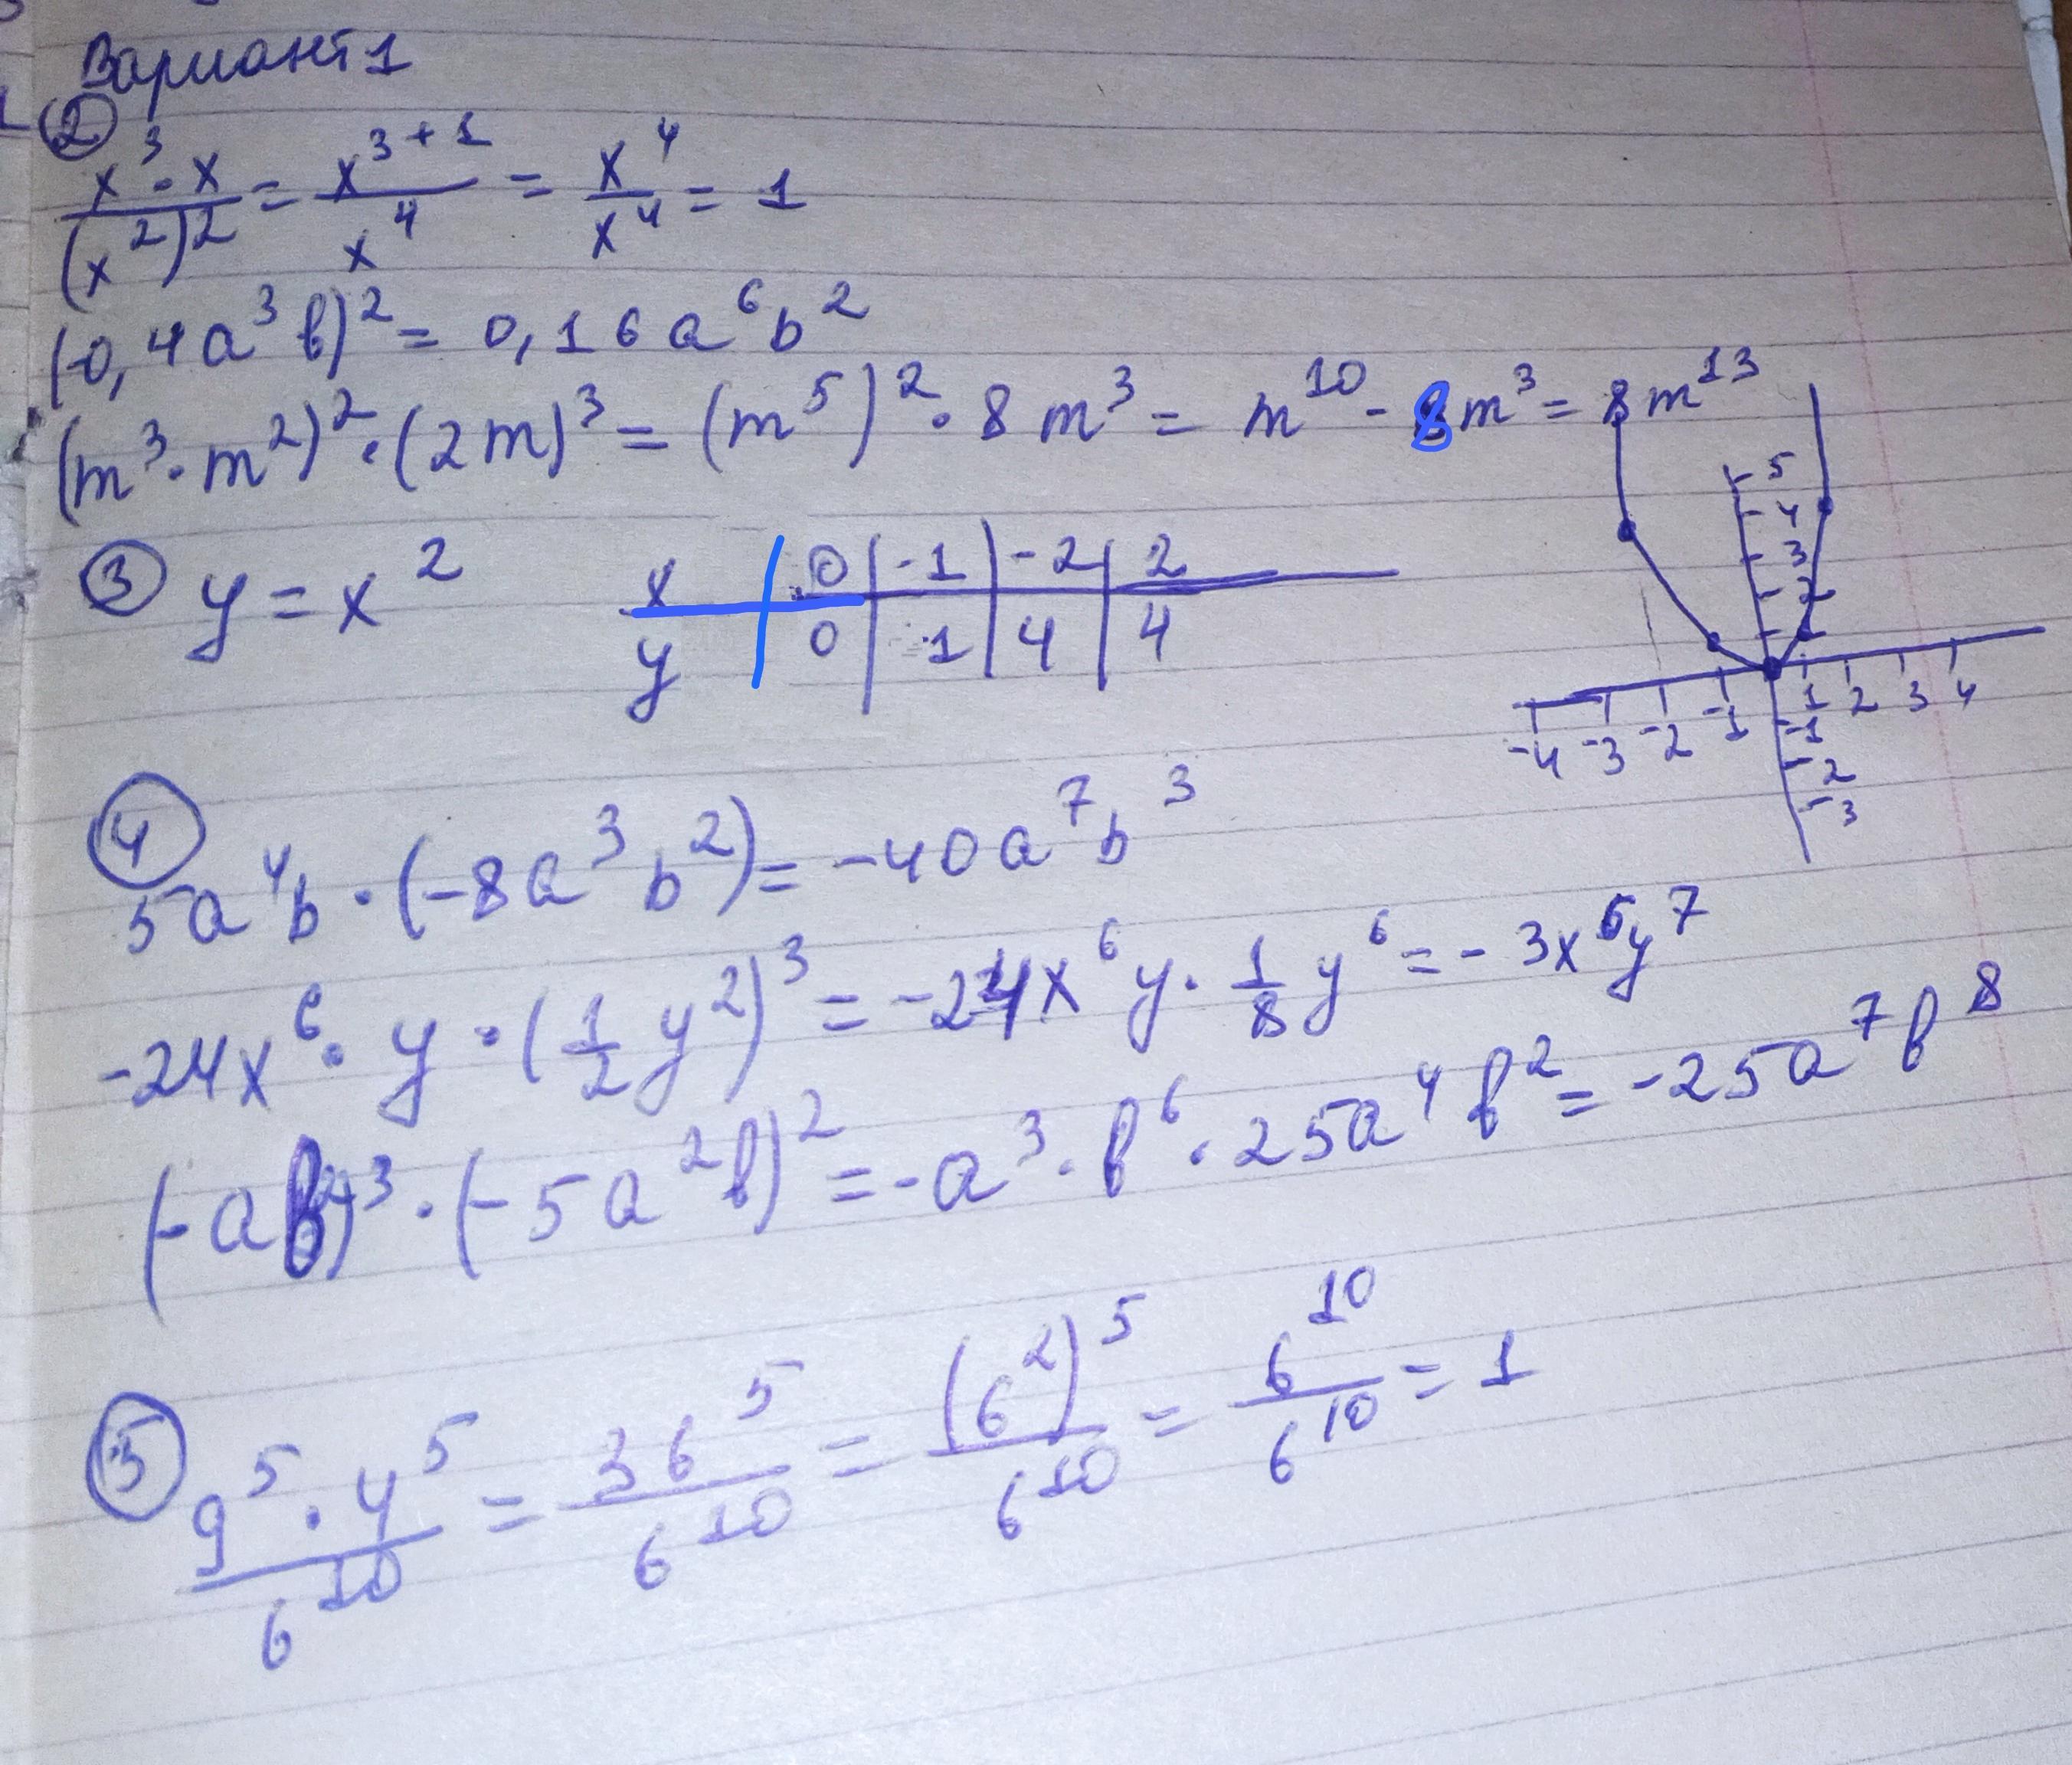 Вариант 1
②
x³·x/(x²)² = x³⁺¹/x⁴ = x⁴/x⁴ = 1
(-0,4a³b)² = 0,16a⁶b²
(m³·m²)²·(2m)³ = (m⁵)²·8m³ = m¹⁰-8m³ = 8m¹³
③ y = x²
x 0 -1 -2 2
y 0 1 4 4
5
4
3
2
1
-4 -3 -2 -1 1 2 3 4
-1
-2
-3
④
5a⁴b·(-8a³b²) = -40a⁷b³
-24x⁶·y·(1/2y²)³ = -24x⁶y·1/8y⁶ = -3x⁶y⁷
(-ab²)³·(-5a²b)² = -a³·b⁶·25a⁴b² = -25a⁷b⁸
⑤
9⁵·4⁵/6¹⁰ = 36⁵/6¹⁰ = (6²)⁵/6¹⁰ = 6¹⁰/6¹⁰ = 1